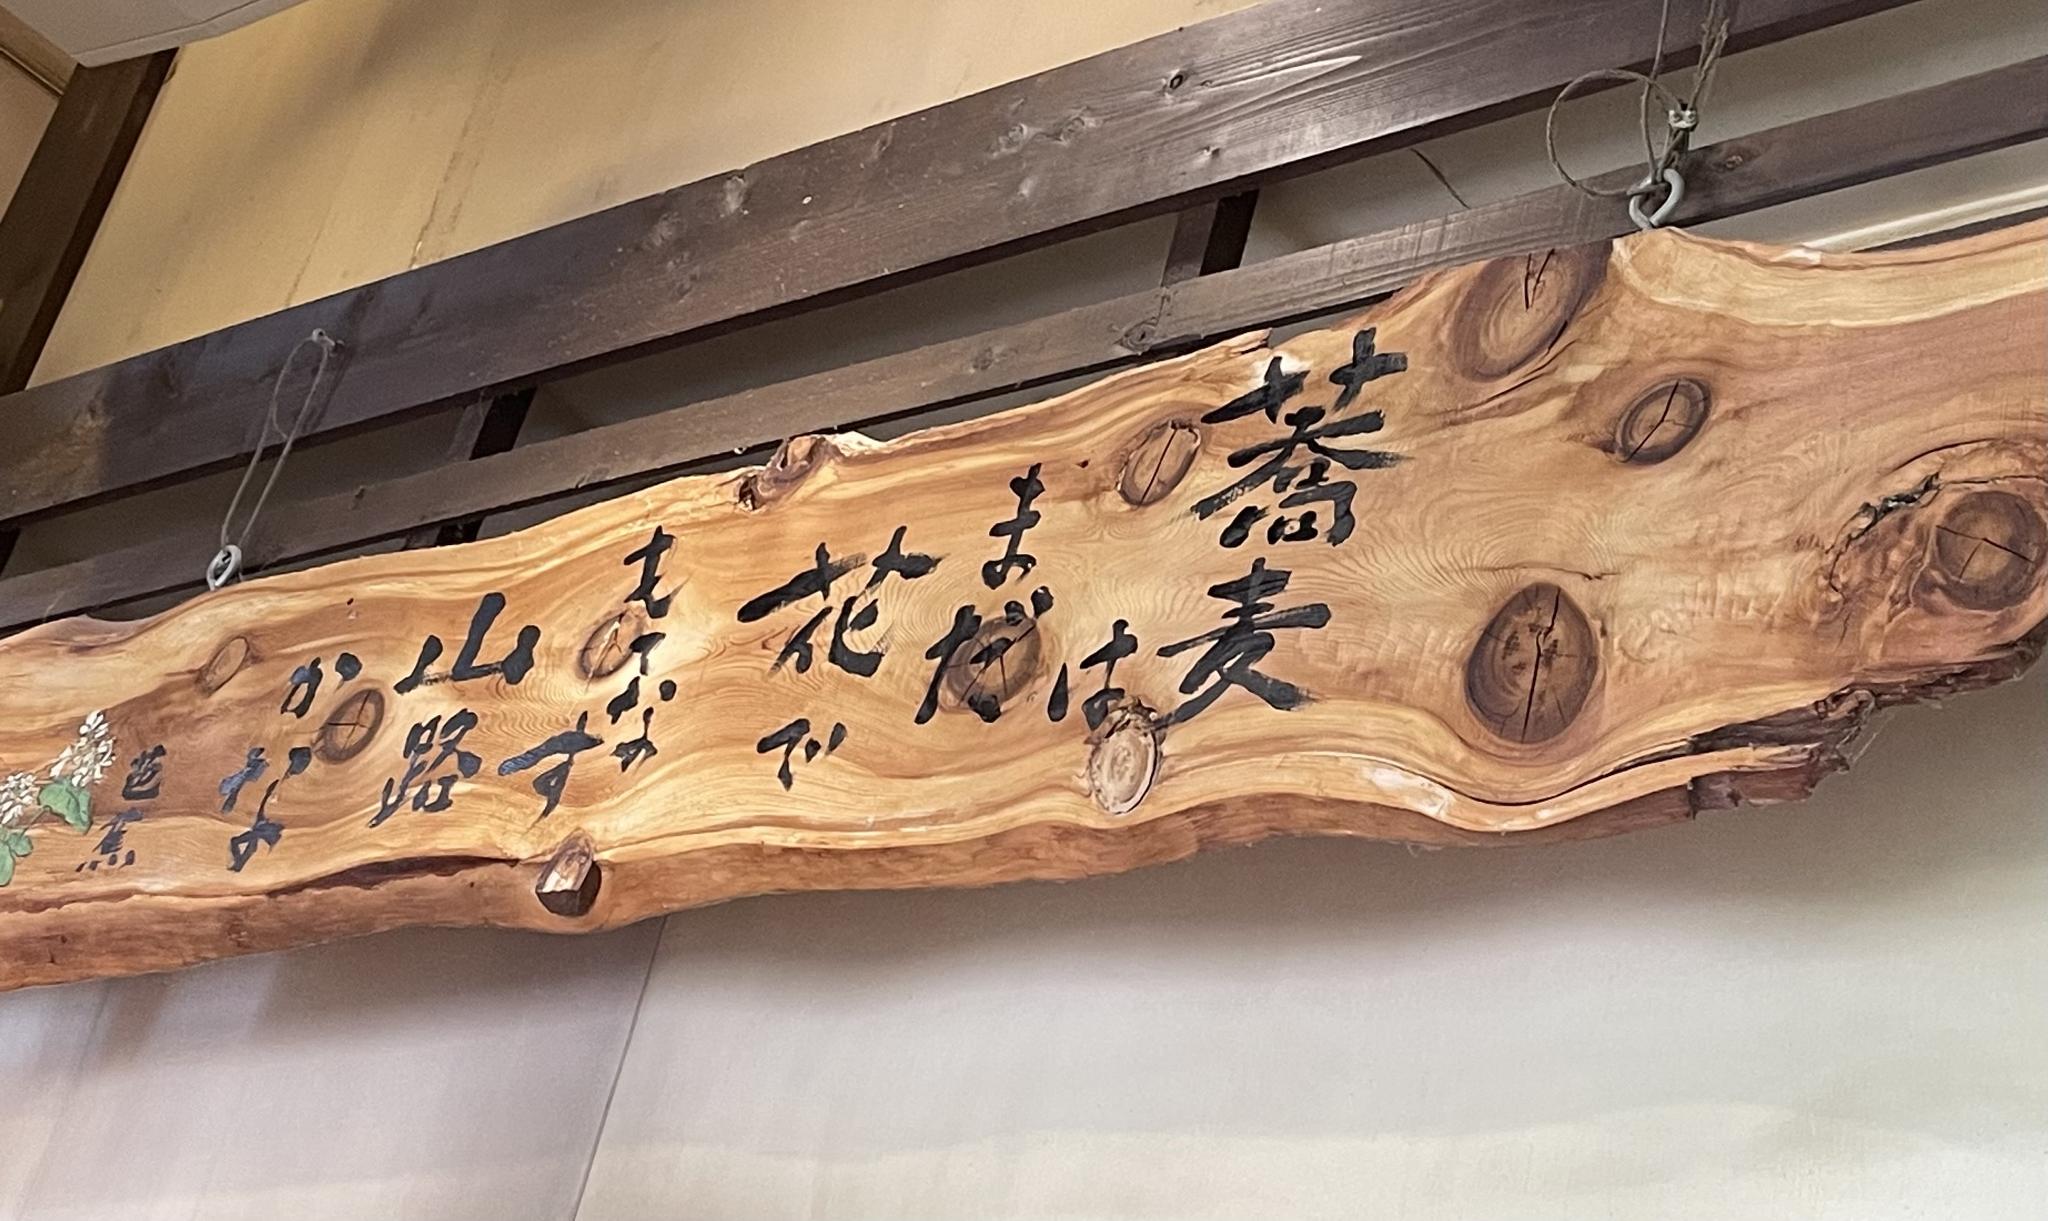 蕎麦は
まだ
花で
もてなす
山路
かな
芭蕉